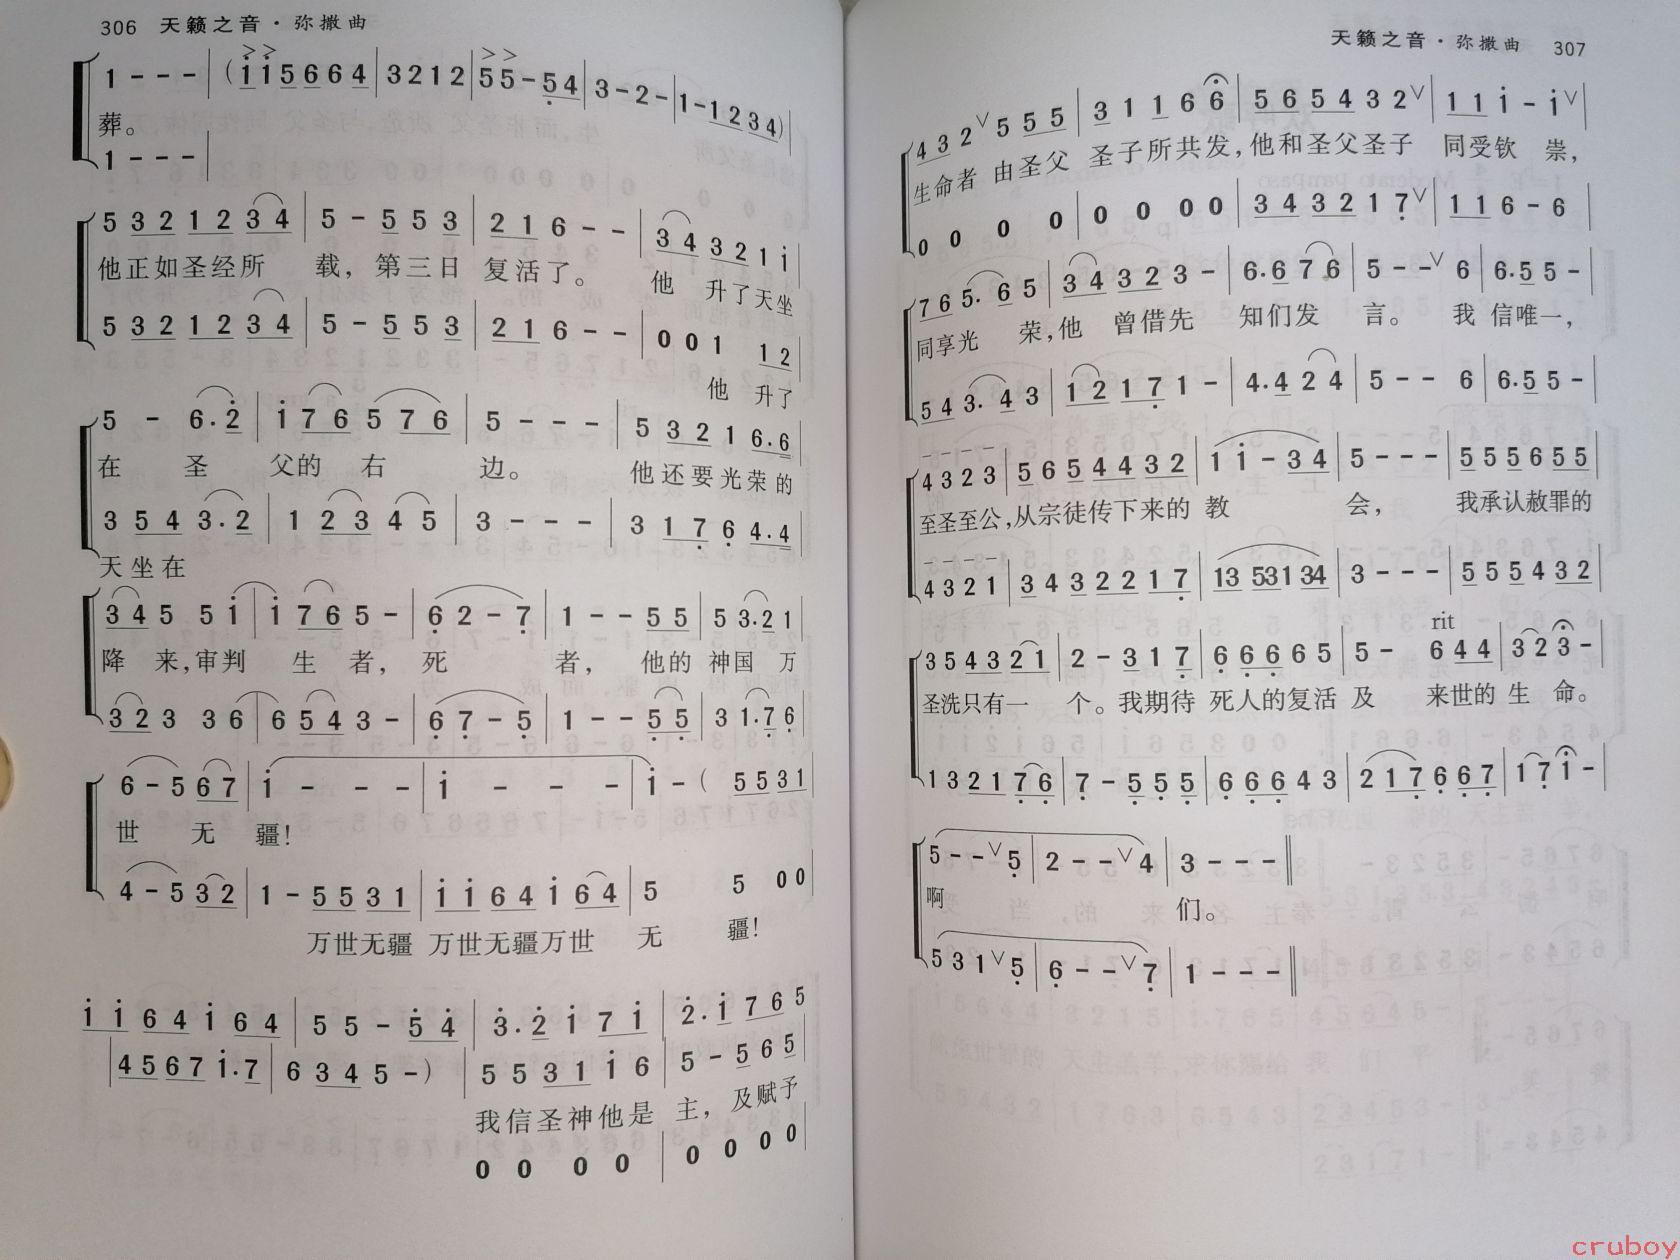 306 天籁之音·弥撒曲
1 - - - | ( i i 5 6 6 4 | 3 2 1 2 | 5 5 - 5 4 | 3 - 2 - | 1 - 1 2 3 4 )
葬。
1 - - - |
5 3 2 1 2 3 4 | 5 - 5 5 3 | 2 1 6 - - | 3 4 3 2 1 i |
他正如圣经所 载, 第三日 复活了。 他 升了天坐
5 3 2 1 2 3 4 | 5 - 5 5 3 | 2 1 6 - - | 0 0 1 1 2 |
他 升了
5 - 6. 2 | i 7 6 5 7 6 | 5 - - - | 5 3 2 1 6. 6 |
在 圣 父的 右 边。 他还要光荣的
3 5 4 3. 2 | 1 2 3 4 5 | 3 - - - | 3 1 7 6 4. 4 |
天坐在
3 4 5 5 i | i 7 6 5 - | 6 2 - 7 | 1 - - 5 5 | 5 3. 2 1 |
降 来,审判 生 者, 死 者, 他的 神国 万
3 2 3 3 6 | 6 5 4 3 - | 6 7 - 5 | 1 - - 5 5 | 3 1. 7 6 |
6 - 5 6 7 | i - - - | i - - - | i - ( 5 5 3 1 |
世 无 疆!
4 - 5 3 2 | 1 - 5 5 3 1 | i i 6 4 i 6 4 | 5 5 0 0 |
万世无疆 万世无疆万世 无 疆!
i i 6 4 i 6 4 | 5 5 - 5 4 | 3. 2 i 7 i | 2. i 7 6 5
4 5 6 7 i. 7 | 6 3 4 5 - ) | 5 5 3 1 i 6 | 5 - 5 6 5 |
我信圣神他是 主, 及赋予
0 0 0 0 | 0 0 0 0 |
天籁之音·弥撒曲 307
4 3 2 ∨ 5 5 5 | 3 1 1 6 6 | 5 6 5 4 3 2 ∨ | 1 1 i - i ∨ |
生命者 由圣父 圣子所共发,他和圣父圣子 同受钦 崇,
0 0 0 0 | 0 0 0 0 | 3 4 3 2 1 7 ∨ | 1 1 6 - 6 |
7 6 5. 6 5 | 3 4 3 2 3 - | 6. 6 7 6 | 5 - - ∨ 6 | 6. 5 5 - |
同享光 荣,他 曾借先 知们发 言。 我 信唯一,
5 4 3. 4 3 | 1 2 1 7 1 - | 4. 4 2 4 | 5 - - 6 | 6. 5 5 - |
4 3 2 3 | 5 6 5 4 4 3 2 | 1 i - 3 4 | 5 - - - | 5 5 5 6 5 5 |
至圣至公,从宗徒传下来的 教 会, 我承认赦罪的
4 3 2 1 | 3 4 3 2 2 1 7 | 13 531 34 | 3 - - - | 5 5 5 4 3 2 |
rit
3 5 4 3 2 1 | 2 - 3 1 7 | 6 6 6 6 5 | 5 - 6 4 4 | 3 2 3 - |
圣洗只有一 个。我期待 死人的复活 及 来世的 生 命。
1 3 2 1 7 6 | 7 - 5 5 5 | 6 6 6 4 3 | 2 1 7 6 6 7 | 1 7 i - |
5 - - ∨ 5 | 2 - - ∨ 4 | 3 - - - ‖
啊 们。
5 3 1 ∨ 5 | 6 - - ∨ 7 | 1 - - - ‖
cruboy